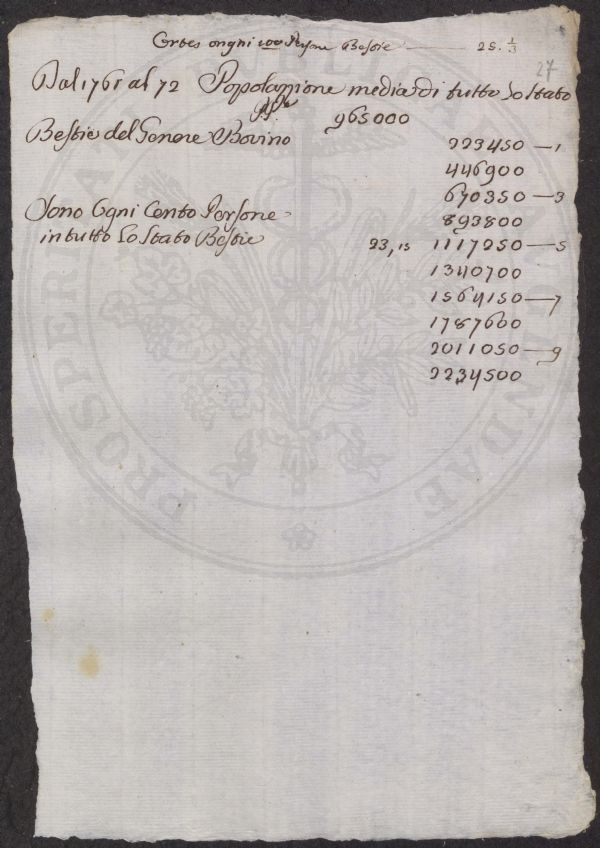 ogni 100 Persone Bestie —— 25. 1/3
27
Dal 1761 al 72 Popolazione media di tutto lo Stato
965000
Bestie del Genere Bovino 223450 — 1
446900
670350 — 3
Sono Ogni Cento Persone 893800
in tutto lo Stato Bestie 23,15 1117250 — 5
1340700
1564150 — 7
1787600
2011050 — 9
2234500
PROSPERITATI PUBLICAE AUGENDAE